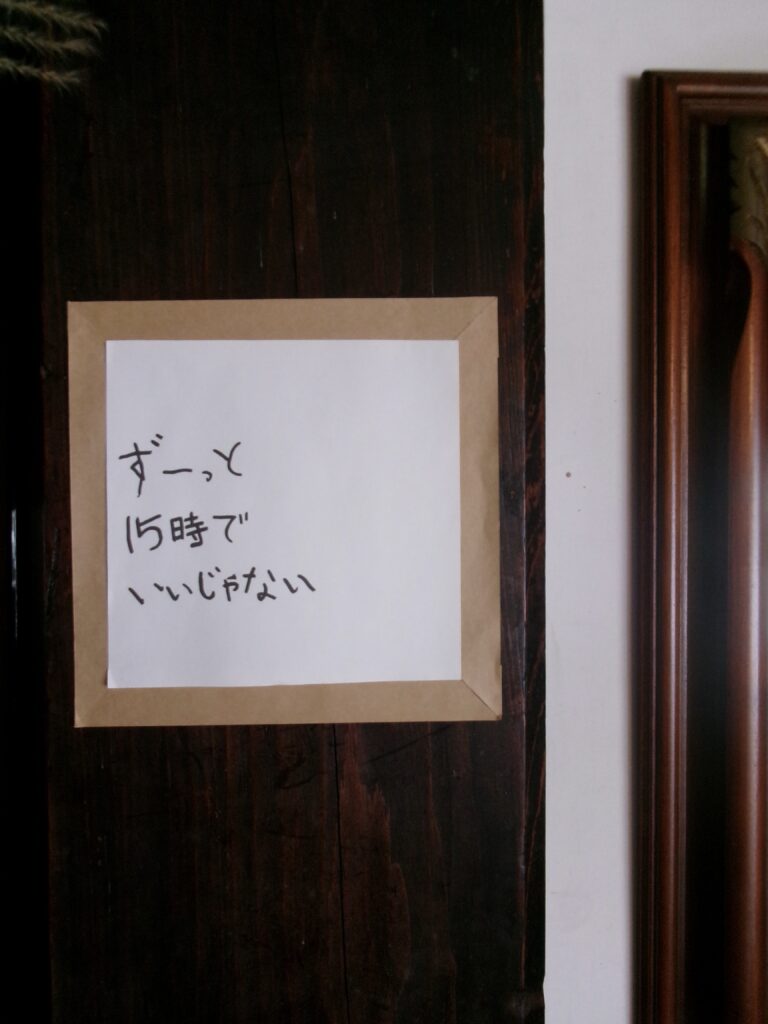 ずーっと
15時で
いいじゃない